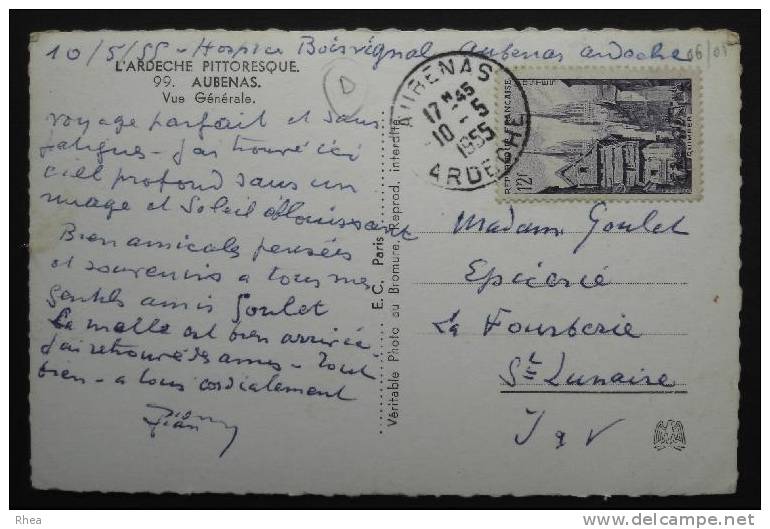 10/5/55 - Hospice Boisvignal Aubenas ardèche
06/01
L'ARDECHE PITTORESQUE.
99. AUBENAS.
Vue Générale.
D
voyage parfait et sans
fatigues - j'ai trouvé ici
ciel profond sans un
nuage et Soleil éblouissant
Bien amicales pensées
et souvenirs a tous mes
gentils amis Goulet
La malle est bien arrivée
j'ai retrouvé des amies - Tout
bien - a tous cordialement
E. C. Paris
Véritable Photo au Bromure. Reprod. interdite
AUBENAS
17H45
10-5
1955
ARDECHE
REPUBLIQUE FRANÇAISE
POSTES
QUIMPER
12F
Madame Goulet
Epicerie
La Fourberie
St Lunaire
I & V
Rhea
www.delcampe.net